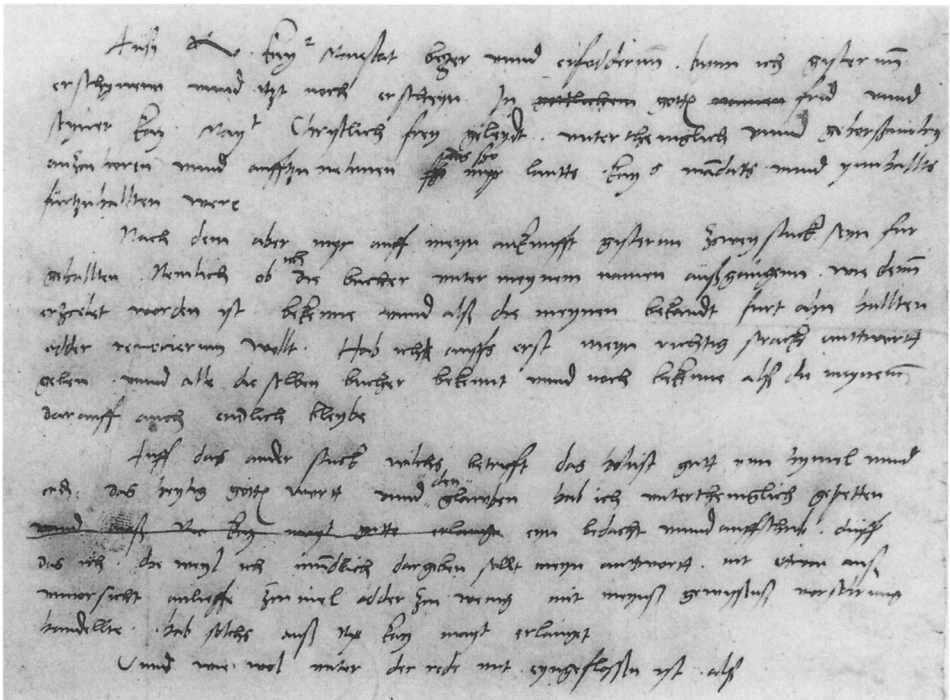 Auff kay Maiestat beger unnd erfodderung. bynn ich gisterun
erschynenn unnd itzt noch erscheyn. In gottlichem gotts namen frid unnd
seyner kay Mayt Christlich frey geleydt. untertheniglich unnd gehorsamlich
antzu horen unnd auffzu nehmen was myr lautts kay mandats unnd ynnhallts
furtzuhallten were
Nach dem aber myr auff meyn ankunfft gisterun zwey stuck seyn fur
gehallten. Nemlich ob ich die bucher unter meynem namen außgangenn. wie denn
erzelet worden ist bekenne unnd alß die meynen bekandt furt ahn hallten
odder revocierun wollt. Hab ich auffs erst meyn richtig strack anttwortt
geben unnd alle die selben bucher bekennt unnd noch bekenne alß die meynenn
darauff auch endlich bleybe
Auff das ander stuck wilchs betrifft das hohist gutt ynn hymel unnd
erd. das heylig gotts wortt unnd den glawben hab ich untertheniglich gepetten
unnd auß kay mayt erlanget eyn bedacht unnd auffschub. Auff
das ich. die weyl ich mundlich dargeben sollt meyn anttwortt. nit etwan auß
unvorsicht anlieffe zu viel odder zu wenig mit meynß gewissens vorsehrung
handellte. hab solchs auß kay mayt erlanget
Unnd wie wol unter der rede mit eyngeflossen ist alß